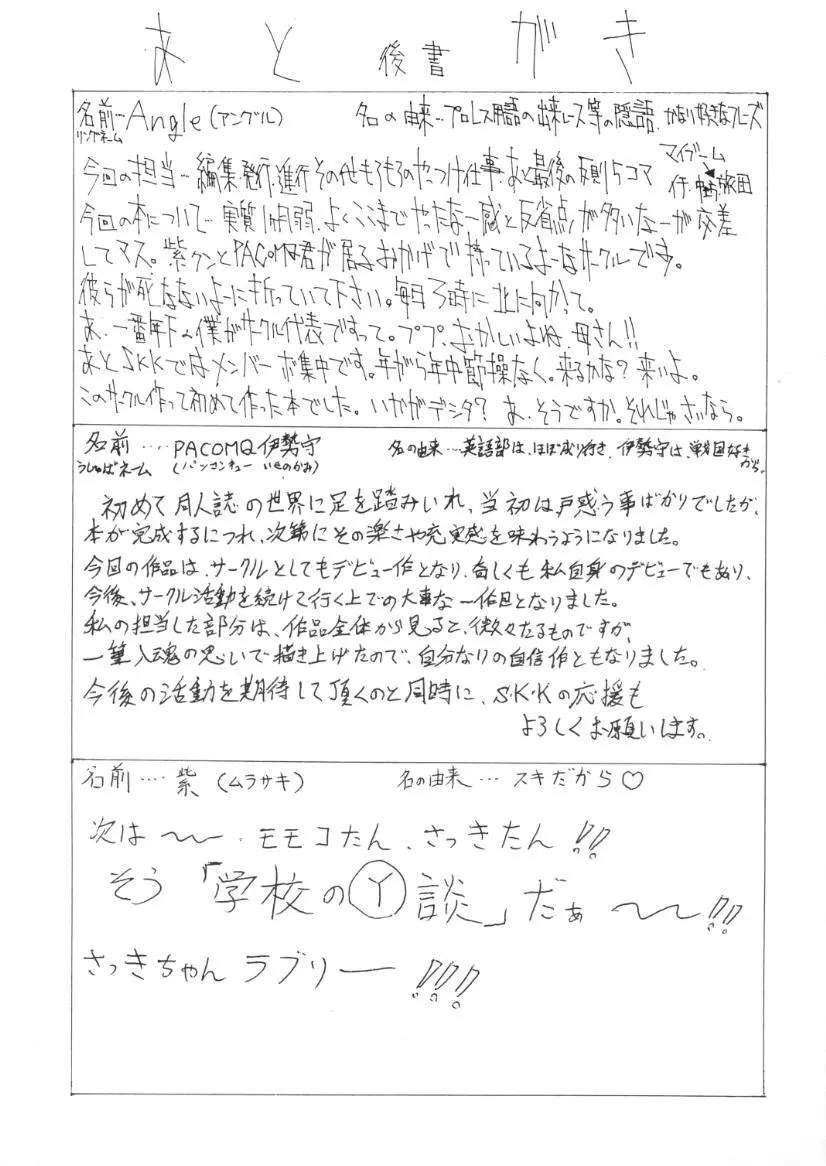 あと 後書 がき
名前…Angle(アングル) 名の由来…プロレス用語の出来レース等の隠語.かなり好きなフレーズ
リングネーム
マイブーム
今回の担当…編集.発行.進行その他もろもろのやっつけ仕事.あと最後の反則5コマ
今回の本について…実質1ヶ月弱.よくここまでやったな一感と反省点が多いなーが交差
してマス。紫クンとPACOMQ君が居るおかげで持っているよーなサークルです。
彼らが死なないよーに祈っていて下さい。毎日3時に北に向かって。
あ、一番年下の僕がサークル代表ですって。ププ、おかしいよね、母さん!!
あとSKKではメンバー募集中です。年がら年中節操なく。来るかな?来いよ。
このサークル作って初めて作った本でした。いかがデシタ?あ、そうですか。それじゃさいなら。
名前…. PACOMQ伊勢守 名の由来…英語部は、ほぼ成り行き、伊勢守は、戦国好きから。
(パンコンキュー いせのかみ)
初めて同人誌の世界に足を踏みいれ、当初は戸惑う事ばかりでしたが、
本が完成するにつれ、次第にその楽さや充実感を味わうようになりました。
今回の作品は、サークルとしてもデビュー作となり、奇しくも私自身のデビューでもあり、
今後、サークル活動を続けて行く上での大事な一作目となりました。
私の担当した部分は、作品全体から見ると、微々たるものですが、
一筆入魂の思いで描き上げたので、自分なりの自信作ともなりました。
今後の活動を期待して頂くのと同時に、S・K・Kの応援も
よろしくお願いします。
名前…. 紫(ムラサキ) 名の由来…スキだから♡
次は〜〜.モモコたん、さっきたん!!
そう「学校のⓎ談」だぁ〜〜!!
さっきちゃんラブリー!!!